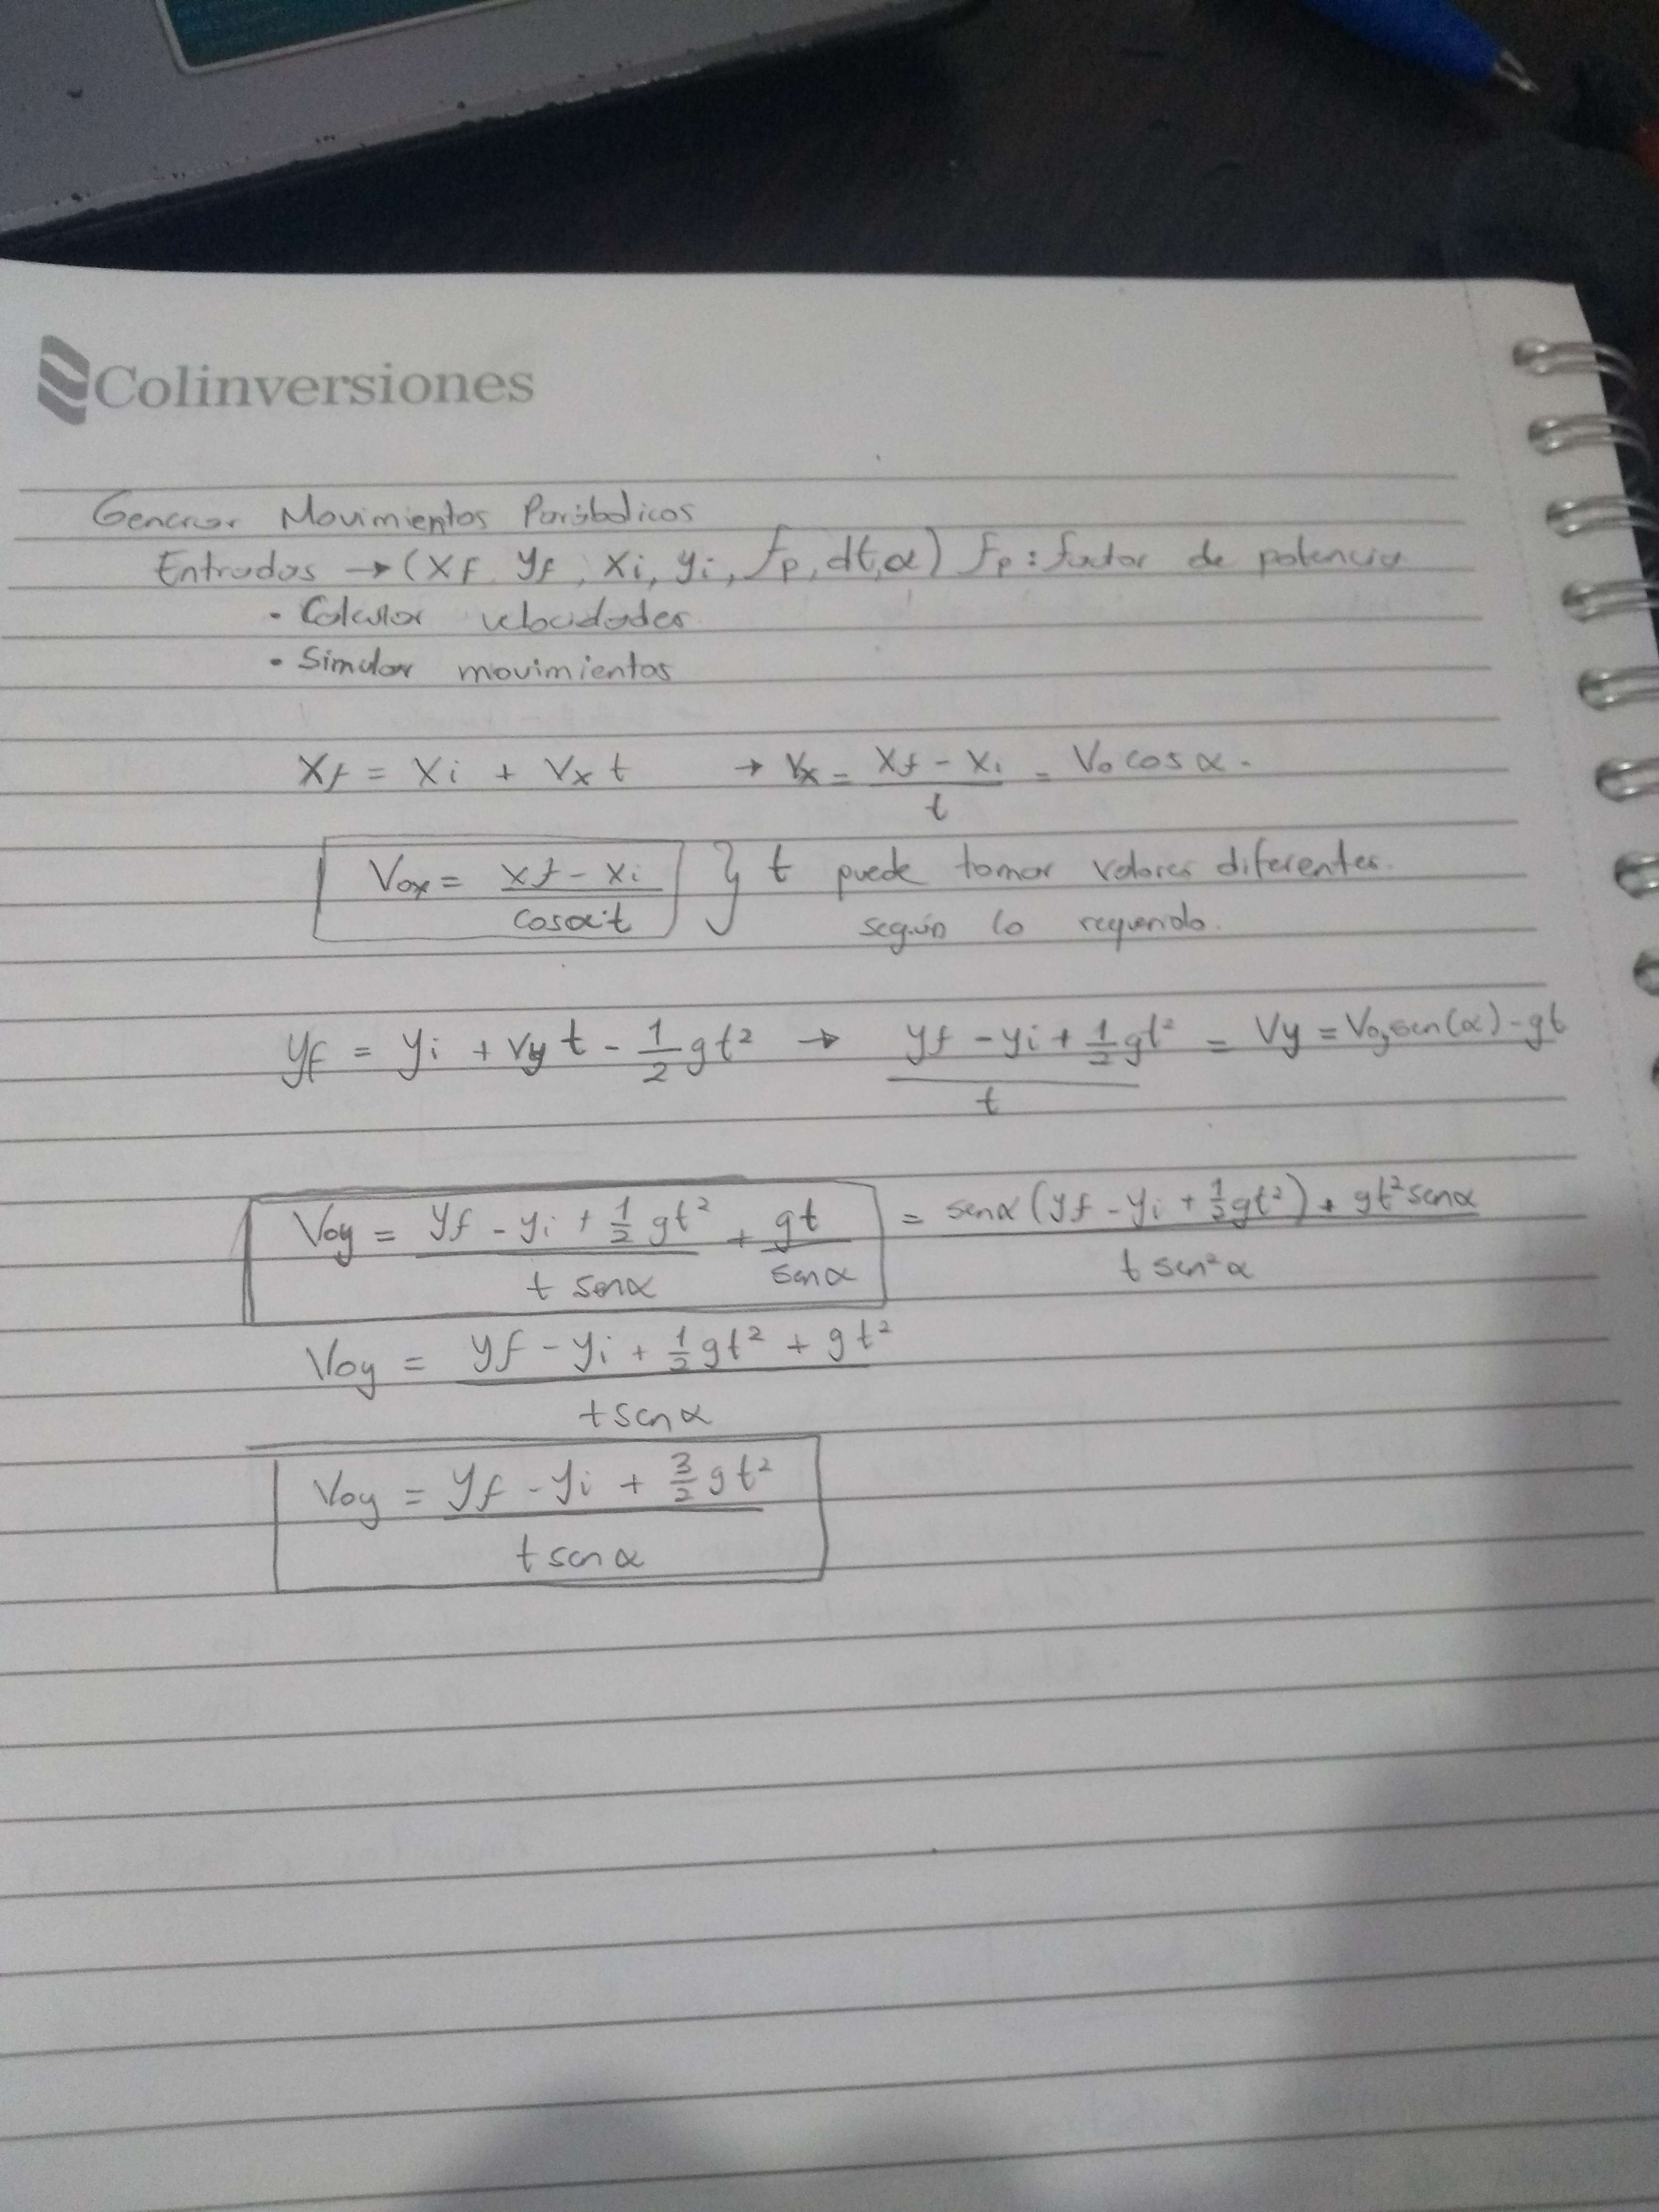 Colinversiones
Generar Movimientos Parábolicos
Entradas → (Xf, Yf, Xi, yi, fp, dt, α) fp: factor de potencia.
• Calcular velocidades
• Simular movimientos
Xf = Xi + Vx t → Vx = (Xf - Xi)/t = Vo cos α.
Vox = (Xf - Xi)/(cosα·t) } t puede tomar valores diferentes.
según lo requerido.
Yf = Yi + Vy t - 1/2 gt² → (Yf - Yi + 1/2 gt²)/t = Vy = Voy sen(α) - gt
Voy = (Yf - Yi + 1/2 gt²)/(t senα) + gt/senα = (senα (Yf - Yi + 1/2 gt²) + gt² senα)/(t sen²α)
Voy = (Yf - Yi + 1/2 gt² + gt²)/(t senα)
Voy = (Yf - Yi + 3/2 gt²)/(t senα)